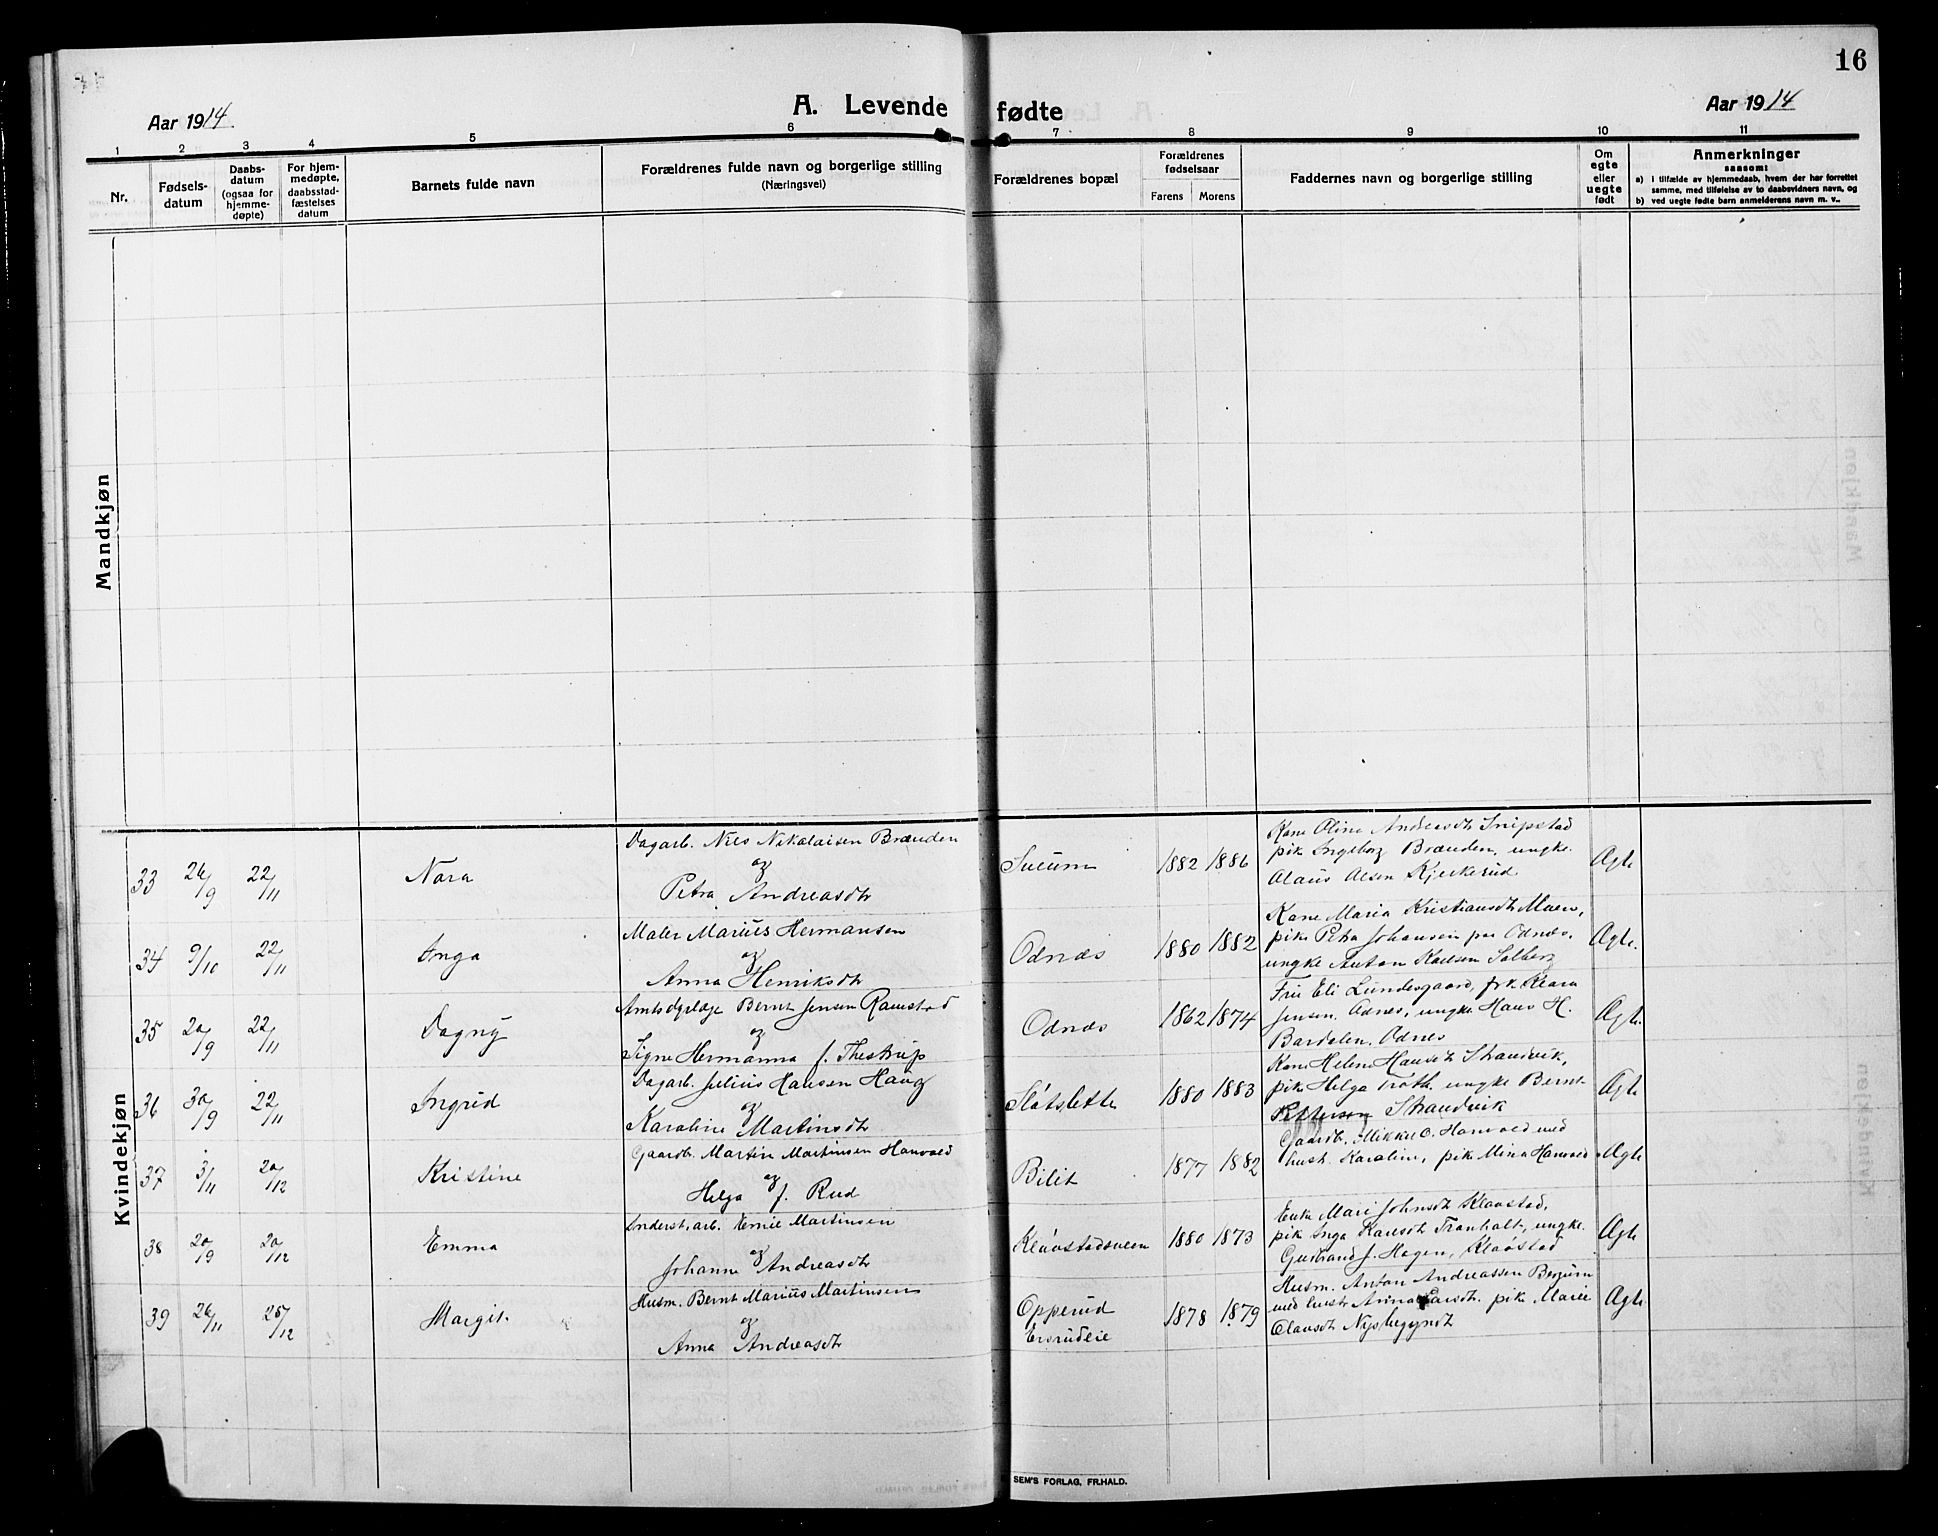 16
Aar 1914
A. Levende fødte
Aar 1914
1 2 3 4 5 6 7 8 9 10 11
Nr.
Fødsels-
datum
Daabs-
datum
(ogsaa for
hjemme-
døpte)
For hjem-
medøpte,
daabsstad-
fæstelses
datum
Barnets fulde navn
Forældrenes fulde navn og borgerlige stilling
(Næringsvei)
Forældrenes bopæl
Forældrenes
fødselsaar
Farens Morens
Faddernes navn og borgerlige stilling
Om
egte
eller
uegte
født
Anmerkninger
saasom:
a) i tilfælde av hjemmedaab, hvem der har forrettet
samme, med tilføielse av to daabsvidners navn, og
b) ved uegte fødte barn anmelderens navn m. v..
Mandkjøn
Kvindekjøn
33 26/9 22/11 Nora
Dagarb. Nils Nikolaisen Brænden
og
Petra Andreasdtr
1882 1886
Kone Oline Andreasdtr Snipstad
pike Ingeborg Brænden, ungk.
Olaus Olsen Kjerkerud
Ægte
34 9/10 22/11 Inga
Maler Marius Hermansen
og
Anna Henriksdtr
Odnæs 1880 1882
Kone Maria Kristiansdtr Moen,
pike Petra Johansen paa Odnæs,
ungke Anton Karlsen Solberg
Ægte.
35 20/9 22/11 Dagny
Amtsdyrlæge Bernt Jensen Ramstad
og
Signe Hermanna f. Thestrup
Odnæs 1862 1874
Fru Eli Lundesgaard, frk Klara
Jensen, Odnæs, ungke Hans H.
Bardalen, Odnes
Ægte.
36 30/9 22/11 Ingrid
Dagarb. Julius Hansen Haug
og
Karoline Martinsdtr
Slåtsletten 1880 1883
Kone Helene Hansdtr Strandvik,
pike Helga Trøth. ungke Bernt
Pettersen Strandvik
Ægte
37 3/11 20/12 Kristine
Gaardb. Martin Martinsen Hanvold
og
Helga f. Rud
Bilit 1877 1882
Gaardb. Mikkel O. Hanvold med
hust. Karoline, pike Mina Hanvold
Ægte
38 20/9 20/12 Emma
Inderst, arb. Emil Martinsen
og
Johanne Andreasdtr
Klåvstadsveen 1880 1873
Enke Mari Johnsdt Klaastad,
pike Inga Karlsdt Tranhalt, ungke.
Gulbrand J. Hagen, Klåøstad
Ægte
39 26/11 25/12 Margit.
Husm. Bernt Marius Martinsen
og
Anna Andreasdtr
Opperud 1878 1879
Husm. Anton Andreassen Bergum
med hustr Anna Larsdt. pike Marie
Olausdt
Ægte.
SEM'S FORLAG, FR.HALD.